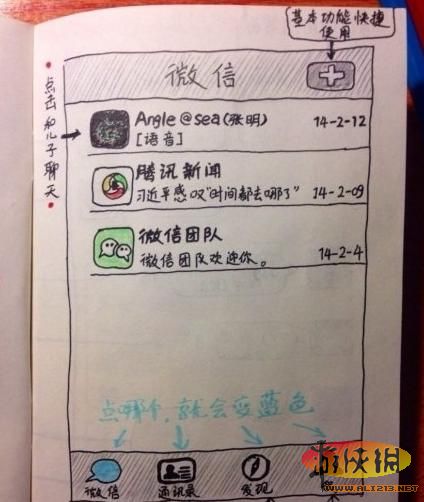 基本功能快捷
使用
微信
点击和儿子聊天
Angle@sea(张明)
14-2-12
[语音]
腾讯新闻
习近平感叹"时间都去哪了"
14-2-09
微信团队
微信团队欢迎你。
14-2-4
点哪个,就会变蓝色
微信
通讯录
发现
游侠网
www.ali213.net